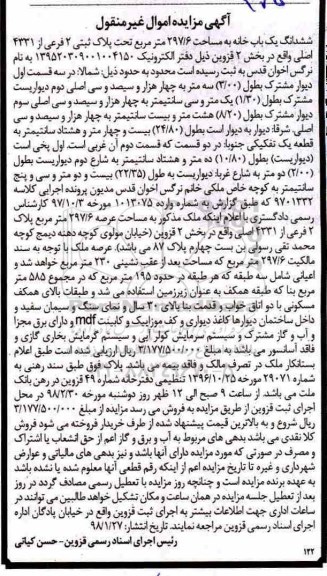 آگهی مزایده اموال غیر منقول
ششدانگ یک باب خانه به مساحت ۲۹۷/۶ متر مربع تحت پلاک ثبتی ۲ فرعی از ۴۳۳۱
اصلی واقع در بخش ۲ قزوین ذیل دفتر الکترونیک ۱۳۹۵۲۰۳۰۹۰۰۱۰۰۴۱۵۰ به نام
نرگس اخوان قدس به ثبت رسیده است محدود به حدود ذیل: شمالا: در سه قسمت اول
دیوار مشترک بطول (۳/۰۰) سه متر به چهار هزار و سیصد و سی اصلی دوم دیواریست
مشترک بطول (۱/۳۰) یک متر و سی سانتیمتر به چهار هزار و سیصد و سی اصلی سوم
دیوار مشترک بطول (۸/۲۰) هشت متر و بیست سانتیمتر به چهار هزار و سیصد و سی
اصلی. شرقا: دیوار به دیوار است بطول (۲۴/۸۰) بیست و چهار متر و هشتاد سانتیمتر به
قطعه یک تفکیکی جنوبا: در دو قسمت که قسمت دوم آن غربی است. اول پخی است
(دیواریست) بطول (۱۰/۸۰) ده متر و هشتاد سانتیمتر به شارع دوم دیواریست بطول
(۲/۰۰) دو متر به شارع غربا: دیواریست به طول (۲۲/۳۵) بیست و دو متر و سی و پنج
سانتیمتر به کوچه خاص ملکی خانم نرگس اخوان قدس مدیون پرونده اجرایی کلاسه
۹۷۰۱۳۳۲ که طبق گزارش به شماره وارده ۱۰۱۳۰۷۵ مورخ ۹۷/۱۰/۳ کارشناس
رسمی دادگستری با اعلام اینکه ملک مذکور به مساحت عرصه ۲۹۷/۶ متر مربع پلاک
۲ فرعی از ۴۳۳۱ اصلی واقع در بخش ۲ قزوین (خیابان مولوی کوچه دهنه دیمج کوچه
محمد تقی رسولی بن بست چهارم پلاک ۸۷ می باشد). عرصه ملک با توجه به سند
مالکیت ۲۹۷/۶ متر مربع که مساحت بعد از عقب نشینی ۲۳۰ متر مربع خواهد شد و
اعیانی شامل سه طبقه که هر طبقه در حدود ۱۹۵ متر مربع که در مجموع ۵۸۵ متر
مربع بنا که طبقه همکف به عنوان زیرزمین استفاده می شد و طبقات بالای همکف
مسکونی با دو اتاق خواب و قدمت بنا بالای ۳۰ سال و نمای سنگ و سیمان سفید و
داخل ساختمان دیوارها کاغذ دیواری و کف موزاییک و کابینت mdf و دارای برق مجزا
و آب و گاز مشترک و سیستم سرمایش کولر آبی و سیستم گرمایش بخاری گازی و
فاقد آسانسور می باشد به مبلغ ۳/۱۷۷/۵۰۰/۰۰۰ ریال ارزیابی شده است طبق اعلام
بستانکار ملک در تصرف مالک و فاقد بیمه می باشد پلاک فوق طبق سند رهنی به
شماره ۲۹۰۷۱ مورخه ۱۳۹۶/۱۰/۲۵ تنظیمی دفترخانه شماره ۴۹ قزوین در رهن بانک
ملت می باشد. از ساعت ۹ صبح الی ۱۲ ظهر روز دوشنبه مورخه ۹۸/۲/۳۰ در محل
اجرای ثبت قزوین از طریق مزایده به فروش می رسد مزایده از مبلغ ۳/۱۷۷/۵۰۰/۰۰۰
ریال شروع و به بالاترین قیمت پیشنهاد شده از طرف خریدار فروخته می شود فروش
کلا نقدی می باشد بدهی های مربوط به آب و برق و گاز اعم از حق انشعاب یا اشتراک
و مصرف در صورتی که مورد مزایده دارای آنها باشد و نیز بدهی های مالیاتی و عوارض
شهرداری و غیره تا تاریخ مزایده اعم از اینکه رقم قطعی آنها معلوم شده یا نشده باشد
به عهده برنده مزایده است و چنانچه روز مزایده با تعطیل رسمی مصادف گردد در روز
بعد از تعطیل جلسه مزایده در همان ساعت و مکان تشکیل خواهد طالبین می توانند در
ساعات اداری جهت اطلاعات بیشتر به اجرای ثبت قزوین واقع در خیابان پادگان اداره
اجرای اسناد رسمی قزوین مراجعه نمایند. تاریخ انتشار: ۹۸/۱/۲۷
رئیس اجرای اسناد رسمی قزوین – حسن کیانی
۱۲۲